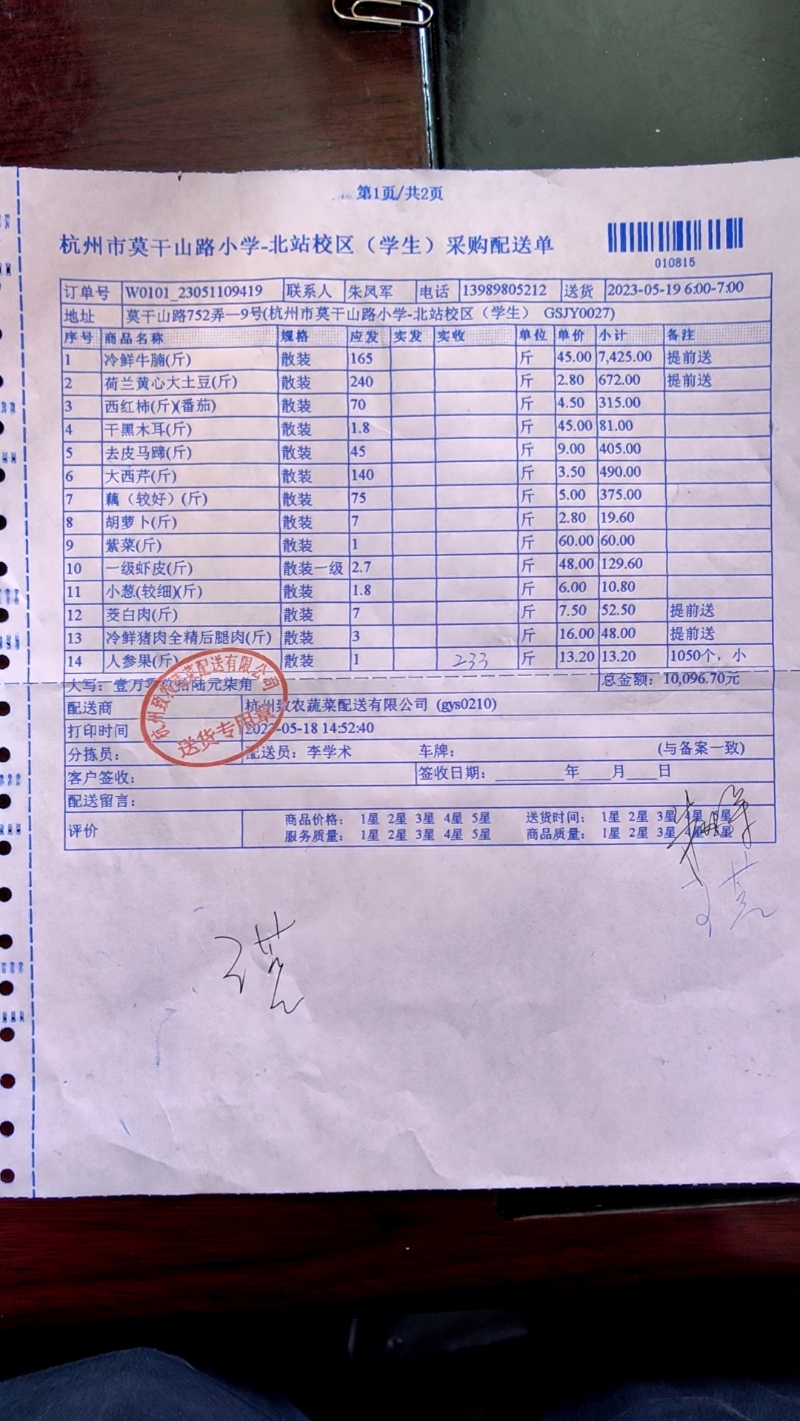 第1页/共2页
杭州市莫干山路小学-北站校区（学生）采购配送单
010815
订单号 W0101_23051109419 联系人 朱凤军 电话 13989805212 送货 2023-05-19 6:00-7:00
地址 莫干山路752弄一9号(杭州市莫干山路小学-北站校区（学生） GSJY0027)
序号 商品名称 规格 应发 实发 实收 单位 单价 小计 备注
1 冷鲜牛腩(斤) 散装 165 斤 45.00 7,425.00 提前送
2 荷兰黄心大土豆(斤) 散装 240 斤 2.80 672.00 提前送
3 西红柿(斤)(番茄) 散装 70 斤 4.50 315.00
4 干黑木耳(斤) 散装 1.8 斤 45.00 81.00
5 去皮马蹄(斤) 散装 45 斤 9.00 405.00
6 大西芹(斤) 散装 140 斤 3.50 490.00
7 藕（较好）(斤) 散装 75 斤 5.00 375.00
8 胡萝卜(斤) 散装 7 斤 2.80 19.60
9 紫菜(斤) 散装 1 斤 60.00 60.00
10 一级虾皮(斤) 散装一级 2.7 斤 48.00 129.60
11 小葱(较细)(斤) 散装 1.8 斤 6.00 10.80
12 茭白肉(斤) 散装 7 斤 7.50 52.50 提前送
13 冷鲜猪肉全精后腿肉(斤) 散装 3 斤 16.00 48.00 提前送
14 人参果(斤) 散装 1 233 斤 13.20 13.20 1050个，小
大写：壹万零玖拾陆元柒角 总金额：10,096.70元
配送商 杭州致农蔬菜配送有限公司 (gys0210)
打印时间 2023-05-18 14:52:40
分拣员： 配送员：李学术 车牌： (与备案一致)
客户签收： 签收日期：______年____月____日
配送留言：
评价 商品价格： 1星 2星 3星 4星 5星 送货时间： 1星 2星 3星 4星 5星
服务质量： 1星 2星 3星 4星 5星 商品质量： 1星 2星 3星 4星 5星
杭州致农蔬菜配送有限公司
送货专用章